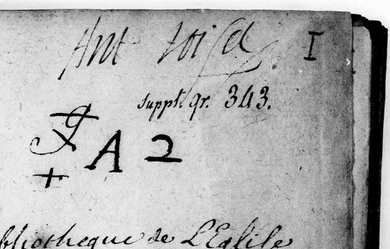 Ant Loisel I
suppt. gr. 343.
A 2
bliotheque de L'Eglise